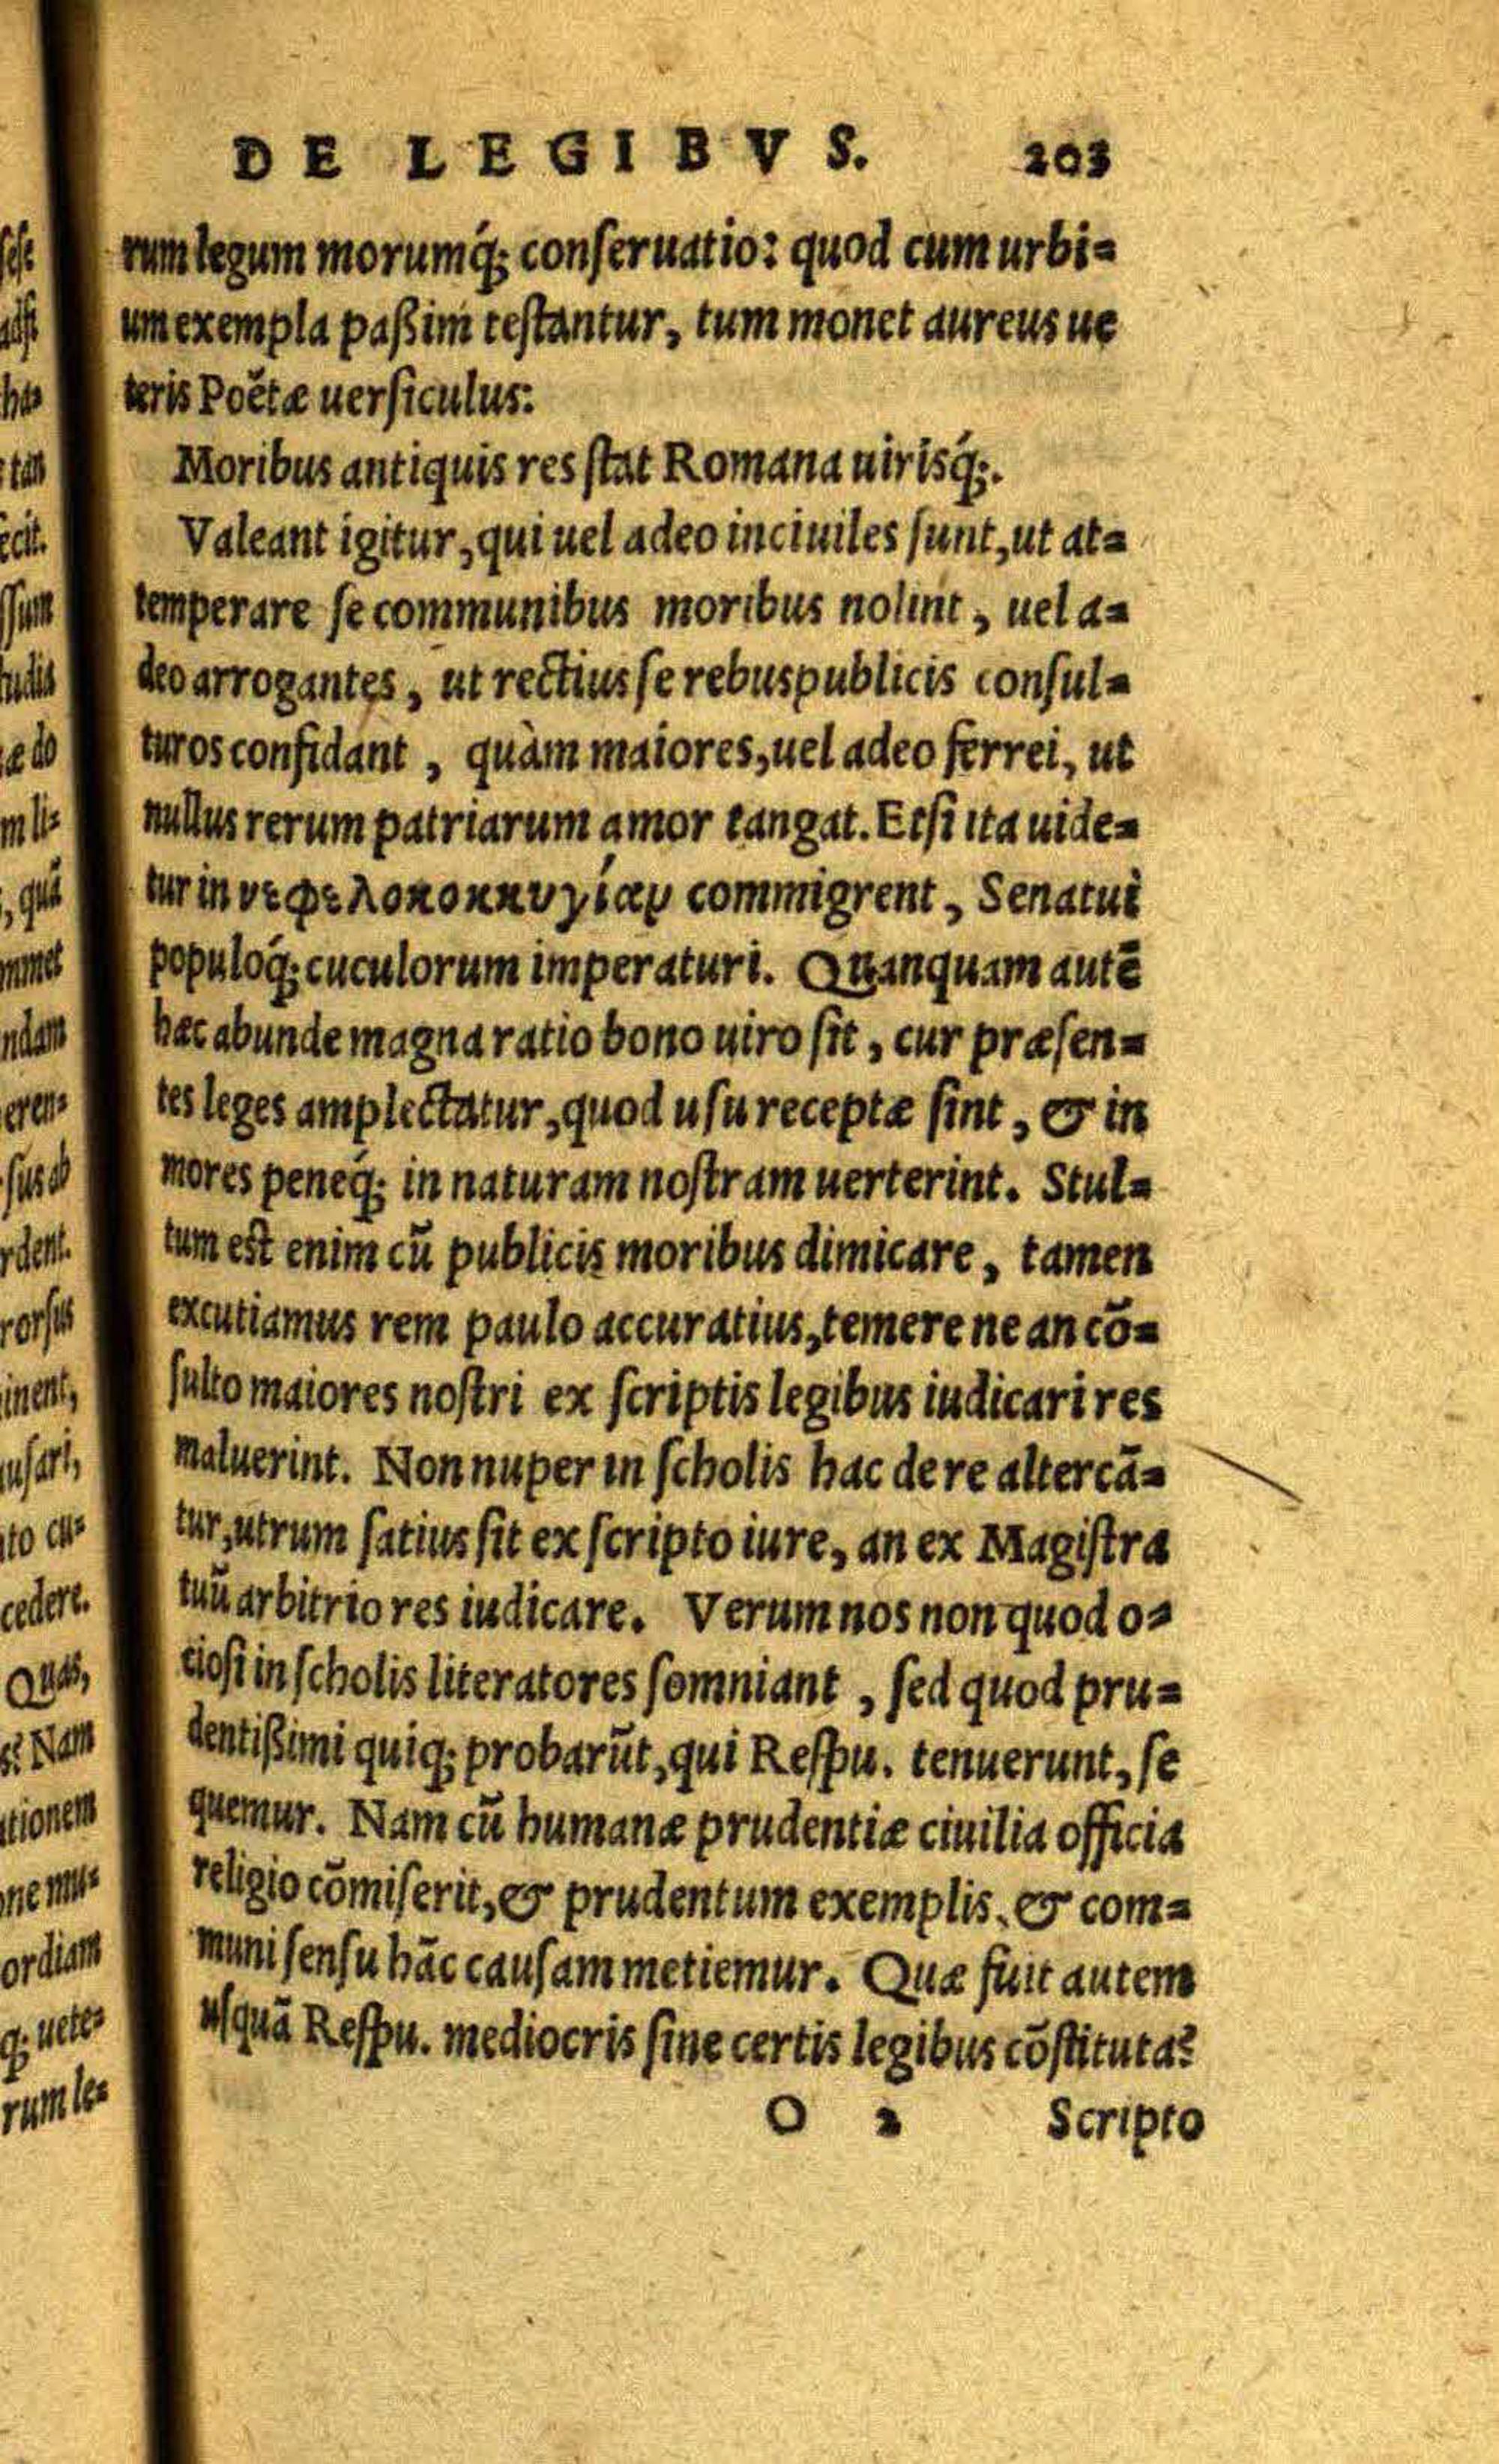 DE LEGIBVS. 203
rum legum morumq́; conſeruatio: quod cum urbi=
um exempla paßim teſtantur, tum monet aureus ue
teris Poëtæ uerſiculus:
Moribus antiquis res ſtat Romana uirisq́;.
Valeant igitur, qui uel adeo inciuiles ſunt, ut at=
temperare ſe communibus moribus nolint, uel a=
deo arrogantes, ut rectius ſe rebuspublicis conſul=
turos confidant, quàm maiores, uel adeo ferrei, ut
nullus rerum patriarum amor tangat. Et ſi ita uide=
tur in νεφελοκοκκυγίαν commigrent, Senatui
populoq́; cuculorum imperaturi. Quanquam autē
hæc abunde magna ratio bono uiro ſit, cur præſen=
tes leges amplectatur, quod uſu receptæ ſint, & in
mores peneq́; in naturam noſtram uerterint. Stul=
tum eſt enim cū publicis moribus dimicare, tamen
excutiamus rem paulo accuratius, temere ne an cō=
ſulto maiores noſtri ex ſcriptis legibus iudicari res
maluerint. Non nuper in ſcholis hac de re altercā=
tur, utrum ſatius ſit ex ſcripto iure, an ex Magiſtra
tuū arbitrio res iudicare. Verum nos non quod o=
cioſi in ſcholis literatores ſomniant, ſed quod pru=
dentißimi quiq; probarūt, qui Reſpu. tenuerunt, ſe
quemur. Nam cū humanæ prudentiæ ciuilia officia
religio cōmiſerit, & prudentum exemplis, & com=
muni ſenſu hāc cauſam metiemur. Quæ fuit autem
uſquā Reſpu. mediocris ſine certis legibus cōſtituta?
O 2 Scripto